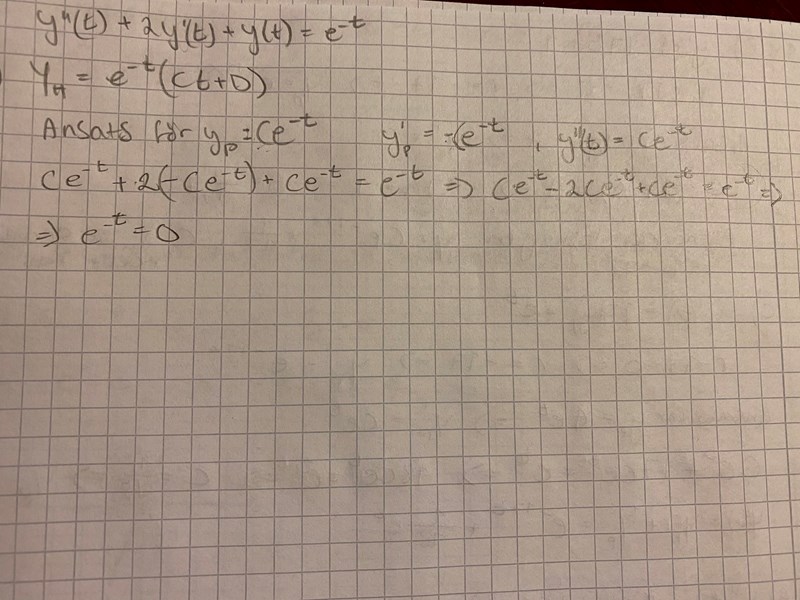 y''(t) + 2y'(t) + y(t) = e^-t
Y_H = e^-t (Ct+D)
Ansats för y_p = Ce^-t y'_p = -Ce^-t , y''(t) = Ce^-t
Ce^-t + 2(-Ce^-t) + Ce^-t = e^-t => Ce^-t - 2Ce^-t + Ce^-t = e^-t =>
=> e^-t = 0